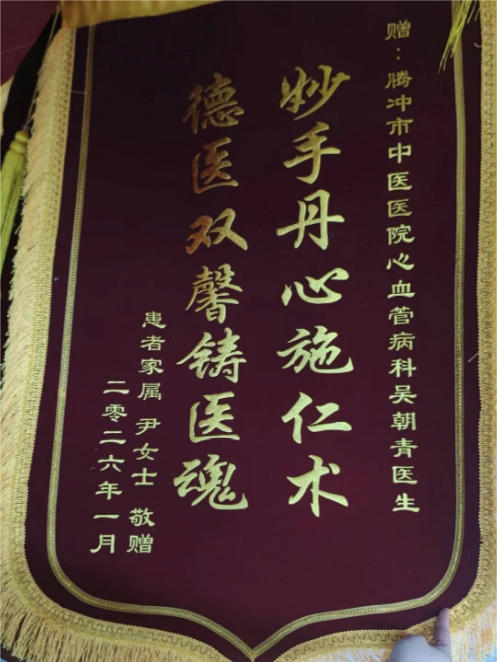 赠：腾冲市中医医院心血管病科吴朝青医生
妙手丹心施仁术
德医双馨铸医魂
患者家属 尹女士 敬赠
二零二六年一月